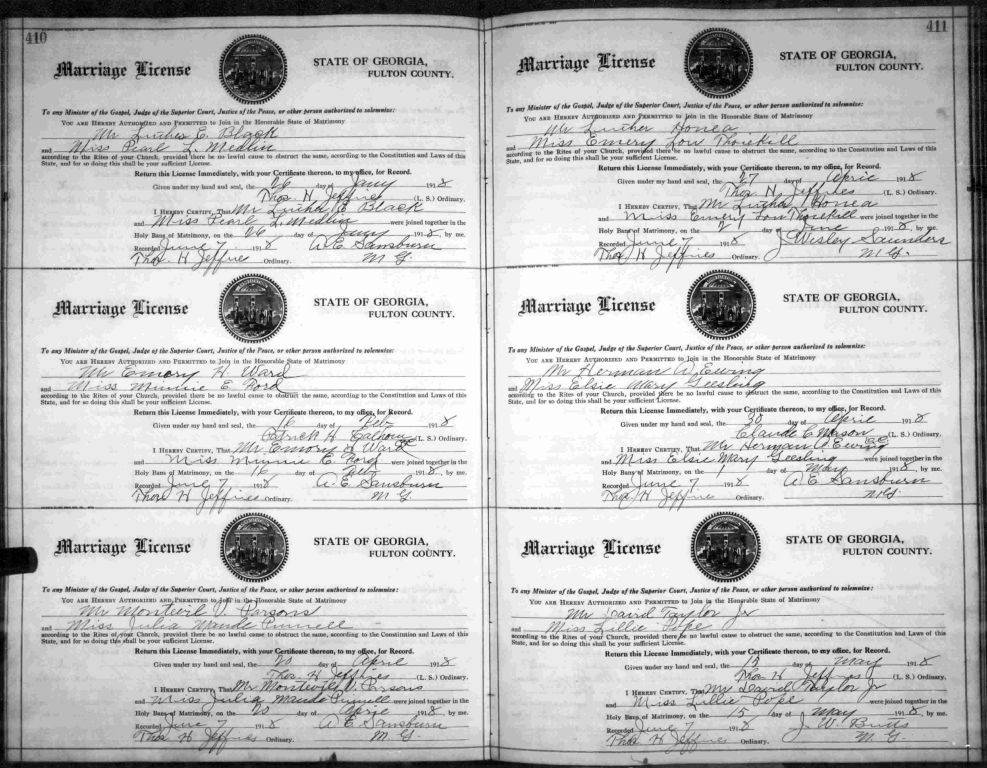 410
Marriage License
STATE OF GEORGIA,
FULTON COUNTY.
To any Minister of the Gospel, Judge of the Superior Court, Justice of the Peace, or other person authorized to solemnize:
YOU ARE HEREBY AUTHORIZED AND PERMITTED to Join in the Honorable State of Matrimony
Mr Luther E. Black
and Miss Pearl L. Medlin
according to the Rites of your Church, provided there be no lawful cause to obstruct the same, according to the Constitution and Laws of this
State, and for so doing this shall be your sufficient License.
Return this License Immediately, with your Certificate thereon, to my office, for Record.
Given under my hand and seal, the 26 day of Jany 1918
Thos. H. Jeffries (L. S.) Ordinary.
I HEREBY CERTIFY, That Mr Luther E Black
and Miss Pearl L. Medlin were joined together in the
Holy Bans of Matrimony, on the 26 day of Jany 1918, by me.
Recorded June 7 1918 A. E. Sansburn
Thos H Jeffries Ordinary. M G
Marriage License
STATE OF GEORGIA,
FULTON COUNTY.
To any Minister of the Gospel, Judge of the Superior Court, Justice of the Peace, or other person authorized to solemnize:
YOU ARE HEREBY AUTHORIZED AND PERMITTED to Join in the Honorable State of Matrimony
Mr Emory H. Ward
and Miss Minnie E. Ford
according to the Rites of your Church, provided there be no lawful cause to obstruct the same, according to the Constitution and Laws of this
State, and for so doing this shall be your sufficient License.
Return this License Immediately, with your Certificate thereon, to my office, for Record.
Given under my hand and seal, the 16 day of Feb 1918
Patrick H. Calhoun (L. S.) Ordinary.
I HEREBY CERTIFY, That Mr Emory H Ward
and Miss Minnie E Ford were joined together in the
Holy Bans of Matrimony, on the day of Feb 1918, by me.
Recorded June 7 1918 A. E. Sansburn
Thos H Jeffries Ordinary. M G
Marriage License
STATE OF GEORGIA,
FULTON COUNTY.
To any Minister of the Gospel, Judge of the Superior Court, Justice of the Peace, or other person authorized to solemnize:
YOU ARE HEREBY AUTHORIZED AND PERMITTED to Join in the Honorable State of Matrimony
Mr V. Parsons
and Miss Julia Maude Punnell
according to the Rites of your Church, provided there be no lawful cause to obstruct the same, according to the Constitution and Laws of this
State, and for so doing this shall be your sufficient License.
Return this License Immediately, with your Certificate thereon, to my office, for Record.
Given under my hand and seal, the 20 day of April 1918
Thos. H Jeffries (L. S.) Ordinary.
I HEREBY CERTIFY, That Mr V. Parsons
and Miss Julia Maude Punnell were joined together in the
Holy Bans of Matrimony, on the 20 day of April 1918, by me.
Recorded June 7 1918 A E Sansburn
Thos H Jeffries Ordinary. M G
411
Marriage License
STATE OF GEORGIA,
FULTON COUNTY.
To any Minister of the Gospel, Judge of the Superior Court, Justice of the Peace, or other person authorized to solemnize:
YOU ARE HEREBY AUTHORIZED AND PERMITTED to Join in the Honorable State of Matrimony
Mr Luther Honea
and Miss Emery Lou
according to the Rites of your Church, provided there be no lawful cause to obstruct the same, according to the Constitution and Laws of this
State, and for so doing this shall be your sufficient License.
Return this License Immediately, with your Certificate thereon, to my office, for Record.
Given under my hand and seal, the 27 day of April 1918
Thos. H. Jeffries (L. S.) Ordinary.
I HEREBY CERTIFY, That Mr Luther Honea
and Miss Emery Lou were joined together in the
Holy Bans of Matrimony, on the 2 day of June 1918, by me.
Recorded June 7 1918 J Wesley Saunders
Thos H Jeffries Ordinary. M G.
Marriage License
STATE OF GEORGIA,
FULTON COUNTY.
To any Minister of the Gospel, Judge of the Superior Court, Justice of the Peace, or other person authorized to solemnize:
YOU ARE HEREBY AUTHORIZED AND PERMITTED to Join in the Honorable State of Matrimony
Mr Herman A. Ewing
and Miss Elsie Mary Geesling
according to the Rites of your Church, provided there be no lawful cause to obstruct the same, according to the Constitution and Laws of this
State, and for so doing this shall be your sufficient License.
Return this License Immediately, with your Certificate thereon, to my office, for Record.
Given under my hand and seal, the 30 day of April 1918
Claude C Mason (L. S.) Ordinary.
I HEREBY CERTIFY, That Mr Herman A Ewing
and Miss Elsie Mary Geesling were joined together in the
Holy Bans of Matrimony, on the 1 day of May 1918, by me.
Recorded June 7 1918 A E Sansburn
Thos H Jeffries Ordinary. M G.
Marriage License
STATE OF GEORGIA,
FULTON COUNTY.
To any Minister of the Gospel, Judge of the Superior Court, Justice of the Peace, or other person authorized to solemnize:
YOU ARE HEREBY AUTHORIZED AND PERMITTED to Join in the Honorable State of Matrimony
Mr David Taylor Jr
and Miss Lillie Pope
according to the Rites of your Church, provided there be no lawful cause to obstruct the same, according to the Constitution and Laws of this
State, and for so doing this shall be your sufficient License.
Return this License Immediately, with your Certificate thereon, to my office, for Record.
Given under my hand and seal, the 15 day of May 1918
Thos H Jeffries (L. S.) Ordinary.
I HEREBY CERTIFY, That Mr David Taylor Jr
and Miss Lillie Pope were joined together in the
Holy Bans of Matrimony, on the 15 day of May 1918, by me.
Recorded June 7 1918 J. W. Butts
Thos H Jeffries Ordinary. M G.